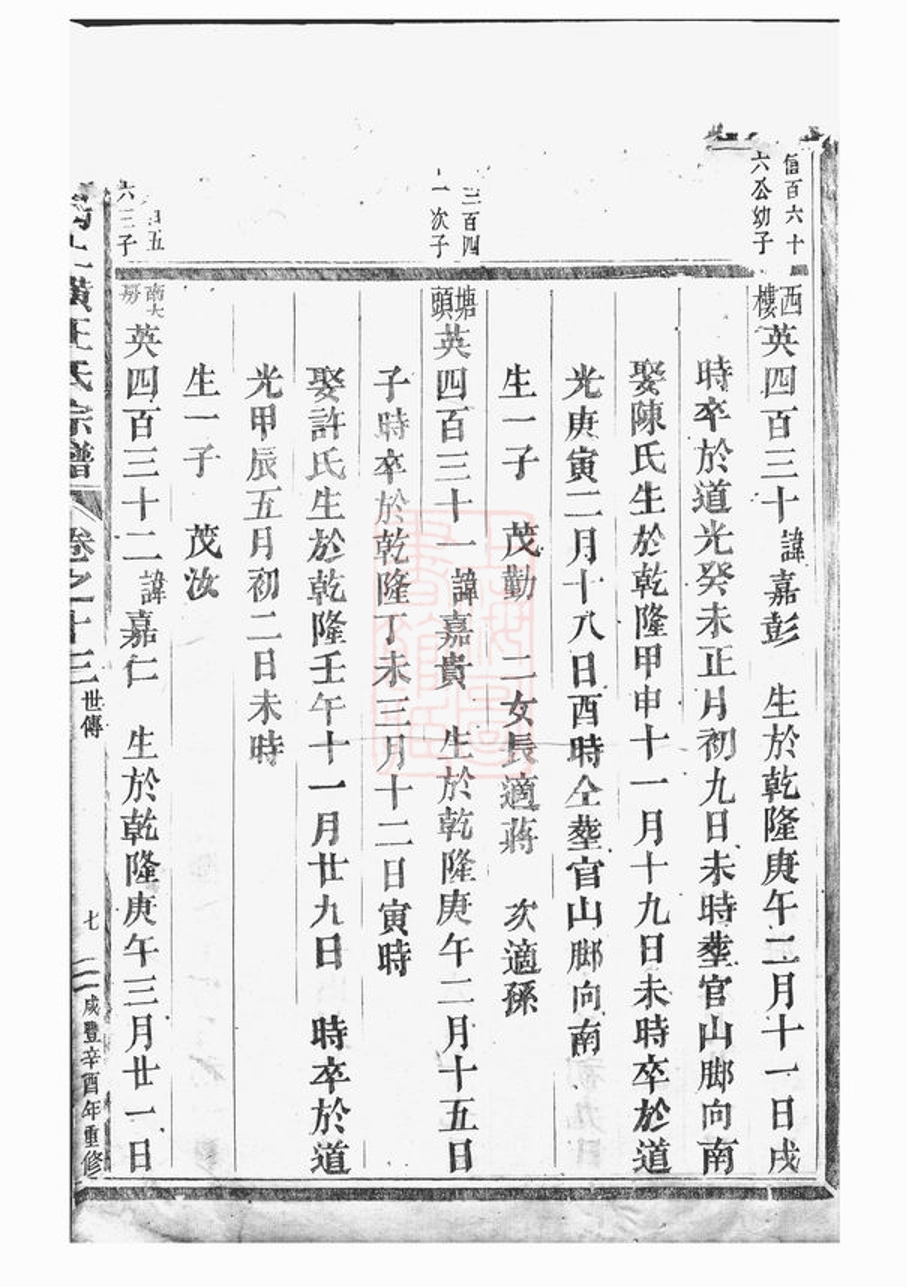 信百六十
六公幼子
西樓英四百三十諱嘉彭　生於乾隆庚午二月十一日戌
時卒於道光癸未正月初九日未時塟官山脚向南
娶陳氏生於乾隆甲申十一月十九日未時卒於道
光庚寅二月十八日酉時仝塟官山脚向南
生一子　茂勤　二女長適蔣　次適孫
三百四
一次子
塘頭英四百三十一諱嘉貴　生於乾隆庚午二月十五日
子時卒於乾隆丁未三月十二日寅時
娶許氏生於乾隆壬午十一月廿九日　時卒於道
光甲辰五月初二日未時
生一子　茂汝
五
六三子
南大房英四百三十二諱嘉仁　生於乾隆庚午三月廿一日
橫汪氏宗譜　卷之十三　世傳　七　咸豐辛酉年重修